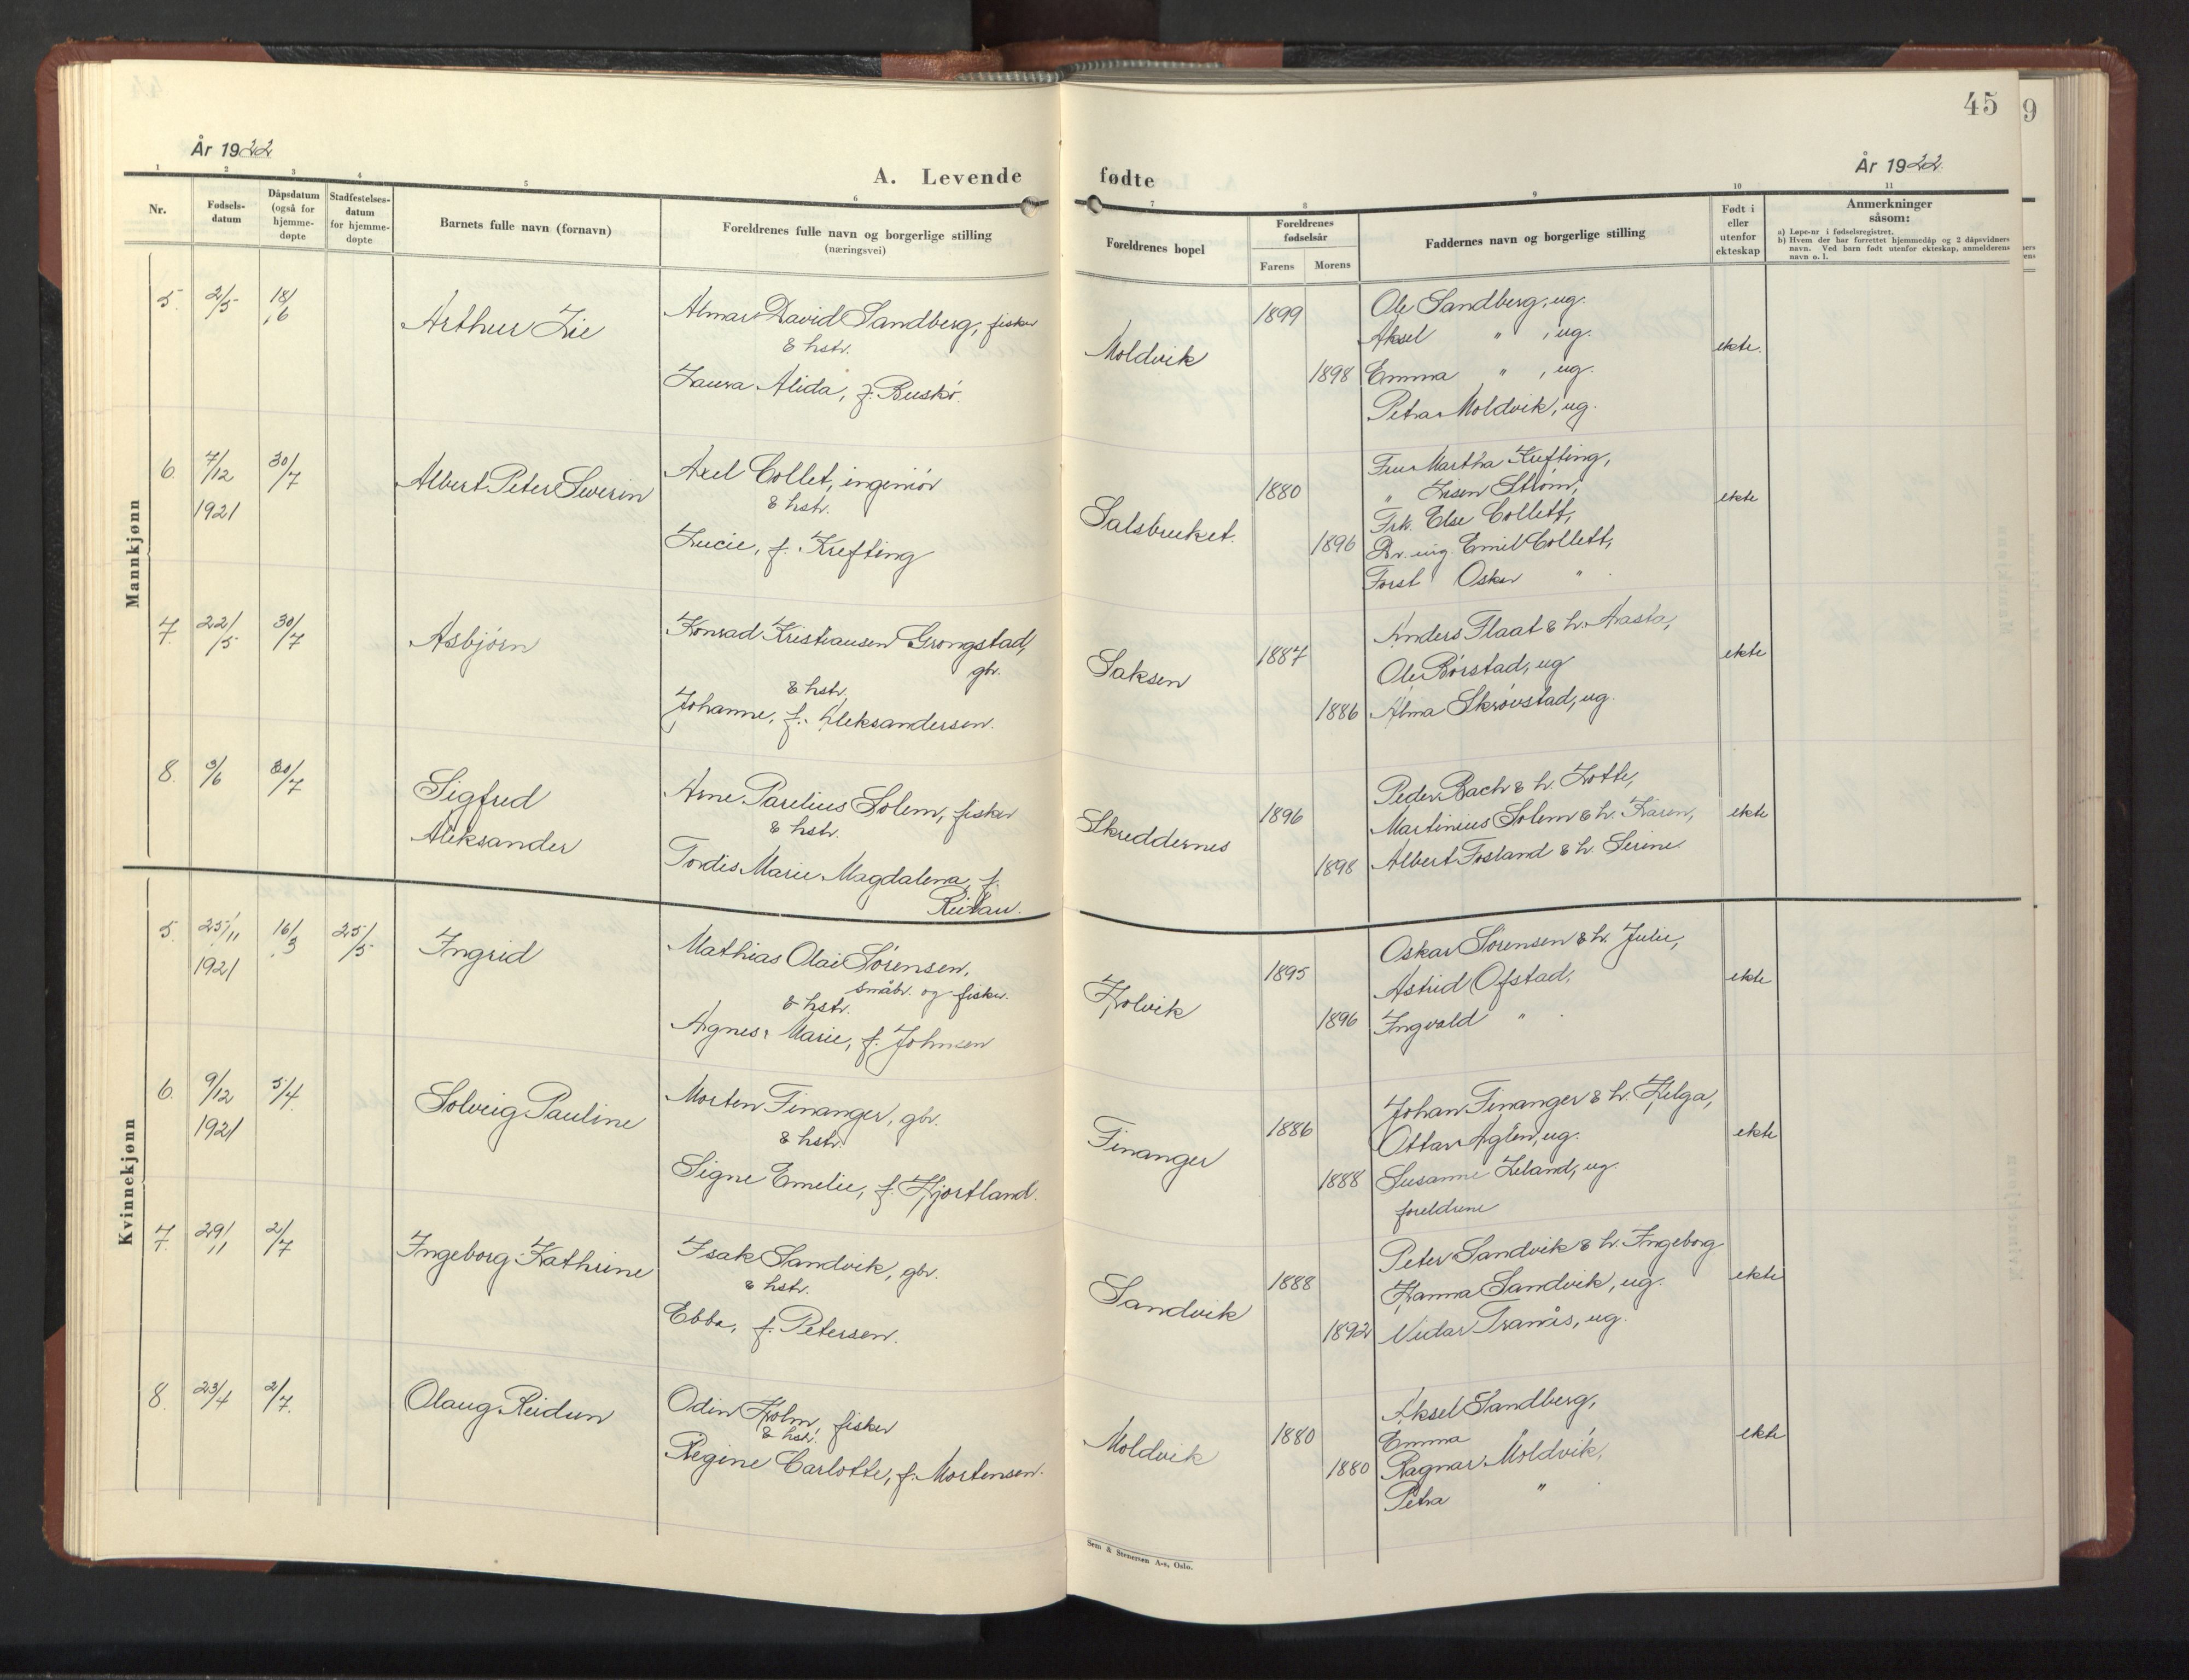 45
9
År 1922
År 1922.
A. Levende
fødte
1
2
3
4
5
6
7
8
9
10
11
Nr.
Fødsels-
datum
Dåpsdatum
(også for
hjemme-
døpte
Stadfestelses-
datum
for hjemme-
døpte
Barnets fulle navn (fornavn)
Foreldrenes fulle navn og borgerlige stilling
(næringsvei)
Foreldrenes bopel
Foreldrenes
fødselsår
Farens
Morens
Faddernes navn og borgerlige stilling
Født i
eller
utenfor
ekteskap
Anmerkninger
såsom:
a) Løpe-nr i fødselsregistret.
b) Hvem der har forrettet hjemmedåp og 2 dåpsvidners
navn. Ved barn født utenfor ekteskap, anmelderens
navn o. l.
Mannkjønn
5.
2/5
18/6
Arthur Lie
Almar David Sandberg, fisker
& hstr.
Laura Alida, f. Buskø.
Moldvik
1899
1898
Ole Sandberg, ug.
Aksel " , ug.
Emma " , ug.
Petra Moldvik, ug.
ekte.
6.
7/12
1921
30/7
Albert Peter Severin
Axel Collet, ingeniør
& hstr.
Lucie, f. Krefting
Salsbruket.
1880
1896
Fru Martha Krefting,
" Strøm,
Frk. Else Collett,
Dr. ing. Emil Collett,
Forst Oskar "
ekte
7.
22/5
30/7
Asbjørn
Konrad Kristiansen Grongstad,
gbr.
& hstr.
Johanne, f. Aleksandersen.
Saksen
1887
1886
Anders Flaat & h. Aasta,
Ole Børstad, ug
Alma Skrøvstad, ug.
ekte
8.
3/6
30/7
Sigfred
Aleksander
Arne Parelius Solem, fisker
& hstr.
Tordis Marie Magdalena, f.
Reitan.
Skreddernes
1896
1898
Peder Bach & h. Lotte,
Martinius Solem & h. Karen,
Albert Fosland & h. Serine.
ekte
Kvinnekjønn
5.
25/11
1921
16/3
25/5
Ingrid
Mathias Olai Sørensen,
småbr. og fisker.
& hstr.
Agnes Marie, f. Johnsen
Holvik
1895
1896
Oskar Sørensen & h. Julie,
Astrid Ofstad,
Ingvald "
ekte
6.
9/12
1921
5/4.
Solveig Pauline
Morten Finanger, gbr.
& hstr.
Signe Emelie, f. Hjortland.
Finanger
1886
1888
Johan Finanger & h. Helga,
Ottar Aglen, ug.
Susanne Leland, ug.
foreldrene
ekte
7.
29/11
2/7
Ingeborg Kathrine
Isak Sandvik, gbr.
& hstr.
Ebba, f. Petersen.
Sandvik
1888
1892
Peter Sandvik & h. Ingeborg
Hanna Sandvik, ug.
Vidar Tranås, ug.
ekte
8.
23/4
2/7.
Olaug Reidun
Odin Holm, fisker
& hstr.
Regine Carlotte, f. Mortensen.
Moldvik
1880
1880
Aksel Sandberg,
Emma " ,
Ragnar Moldvik,
Petra "
ekte
Sem & Stenersen A-s, Oslo.